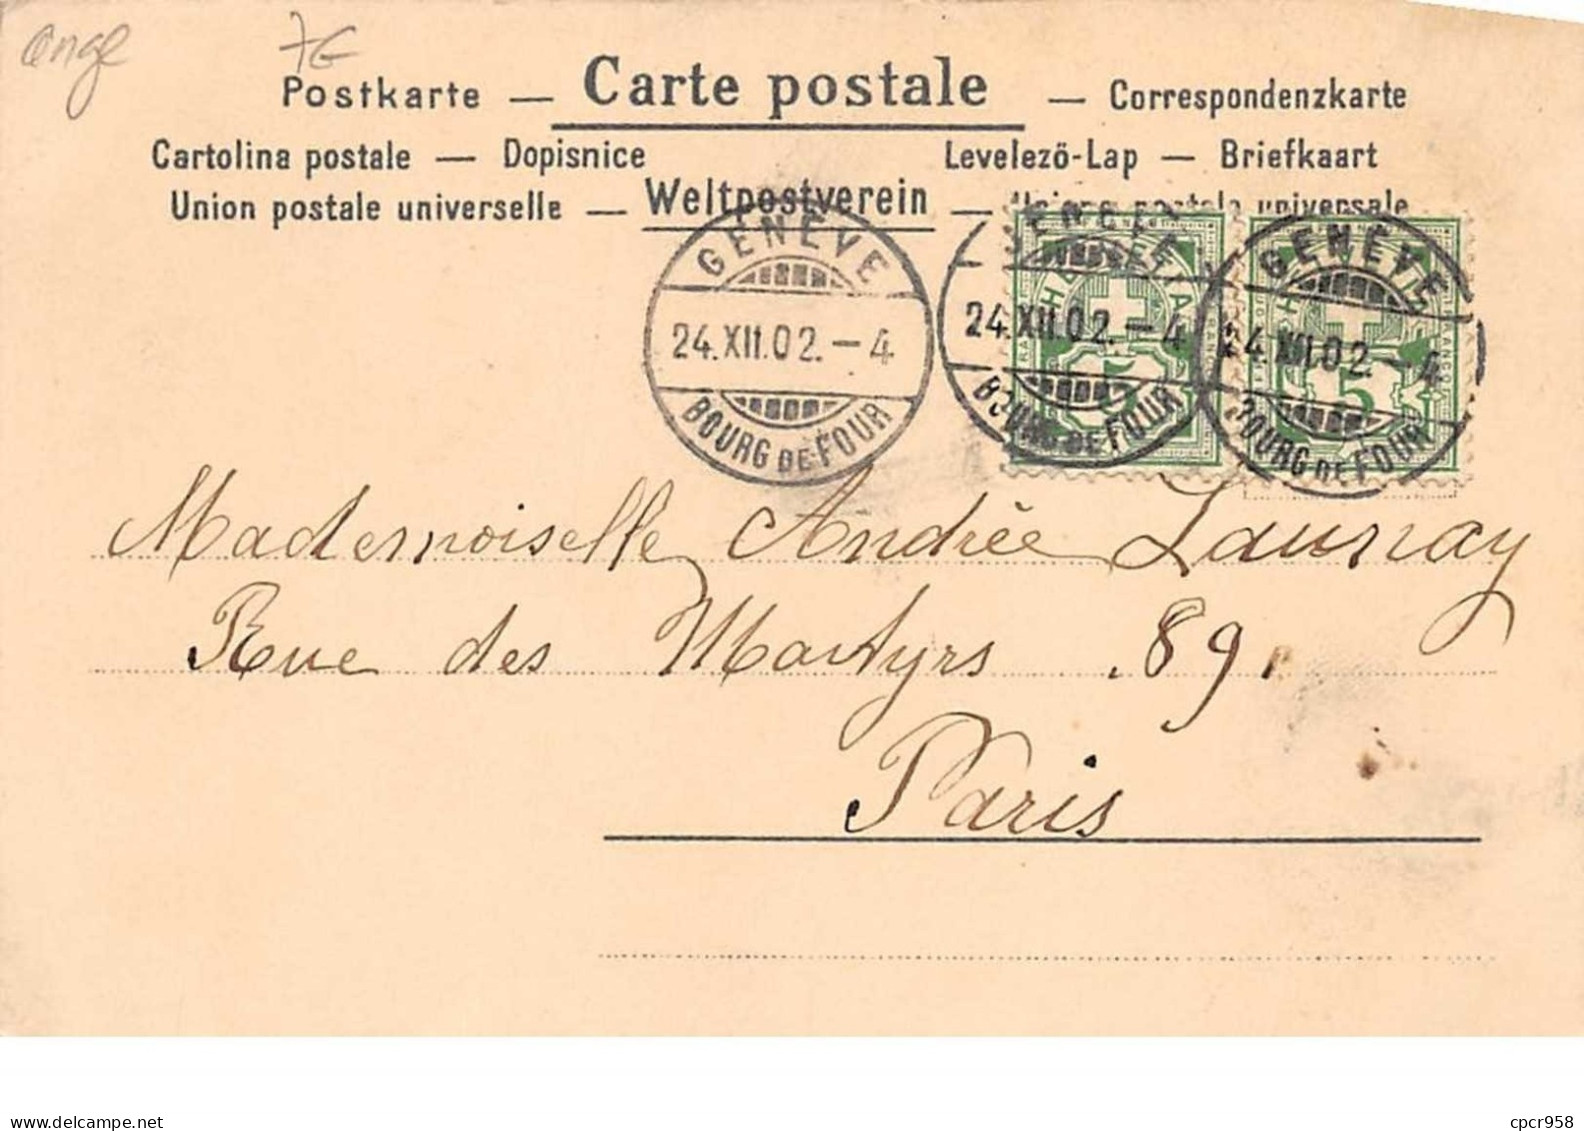 ange 7€
Postkarte — Carte postale — Correspondenzkarte
Cartolina postale — Dopisnice Levelező-Lap — Briefkaart
Union postale universelle — Weltpostverein — Unione postale universale
GENÈVE GENÈVE GENÈVE
24.XII.02.–4 24.XII.02.–4 24.XII.02.–4
HELVETIA HELVETIA
5 5
BOURG DE FOUR BOURG DE FOUR BOURG DE FOUR
Mademoiselle Andrée Launay
Rue des Martyrs . 89 .
Paris
delcampe.net
cpcr958